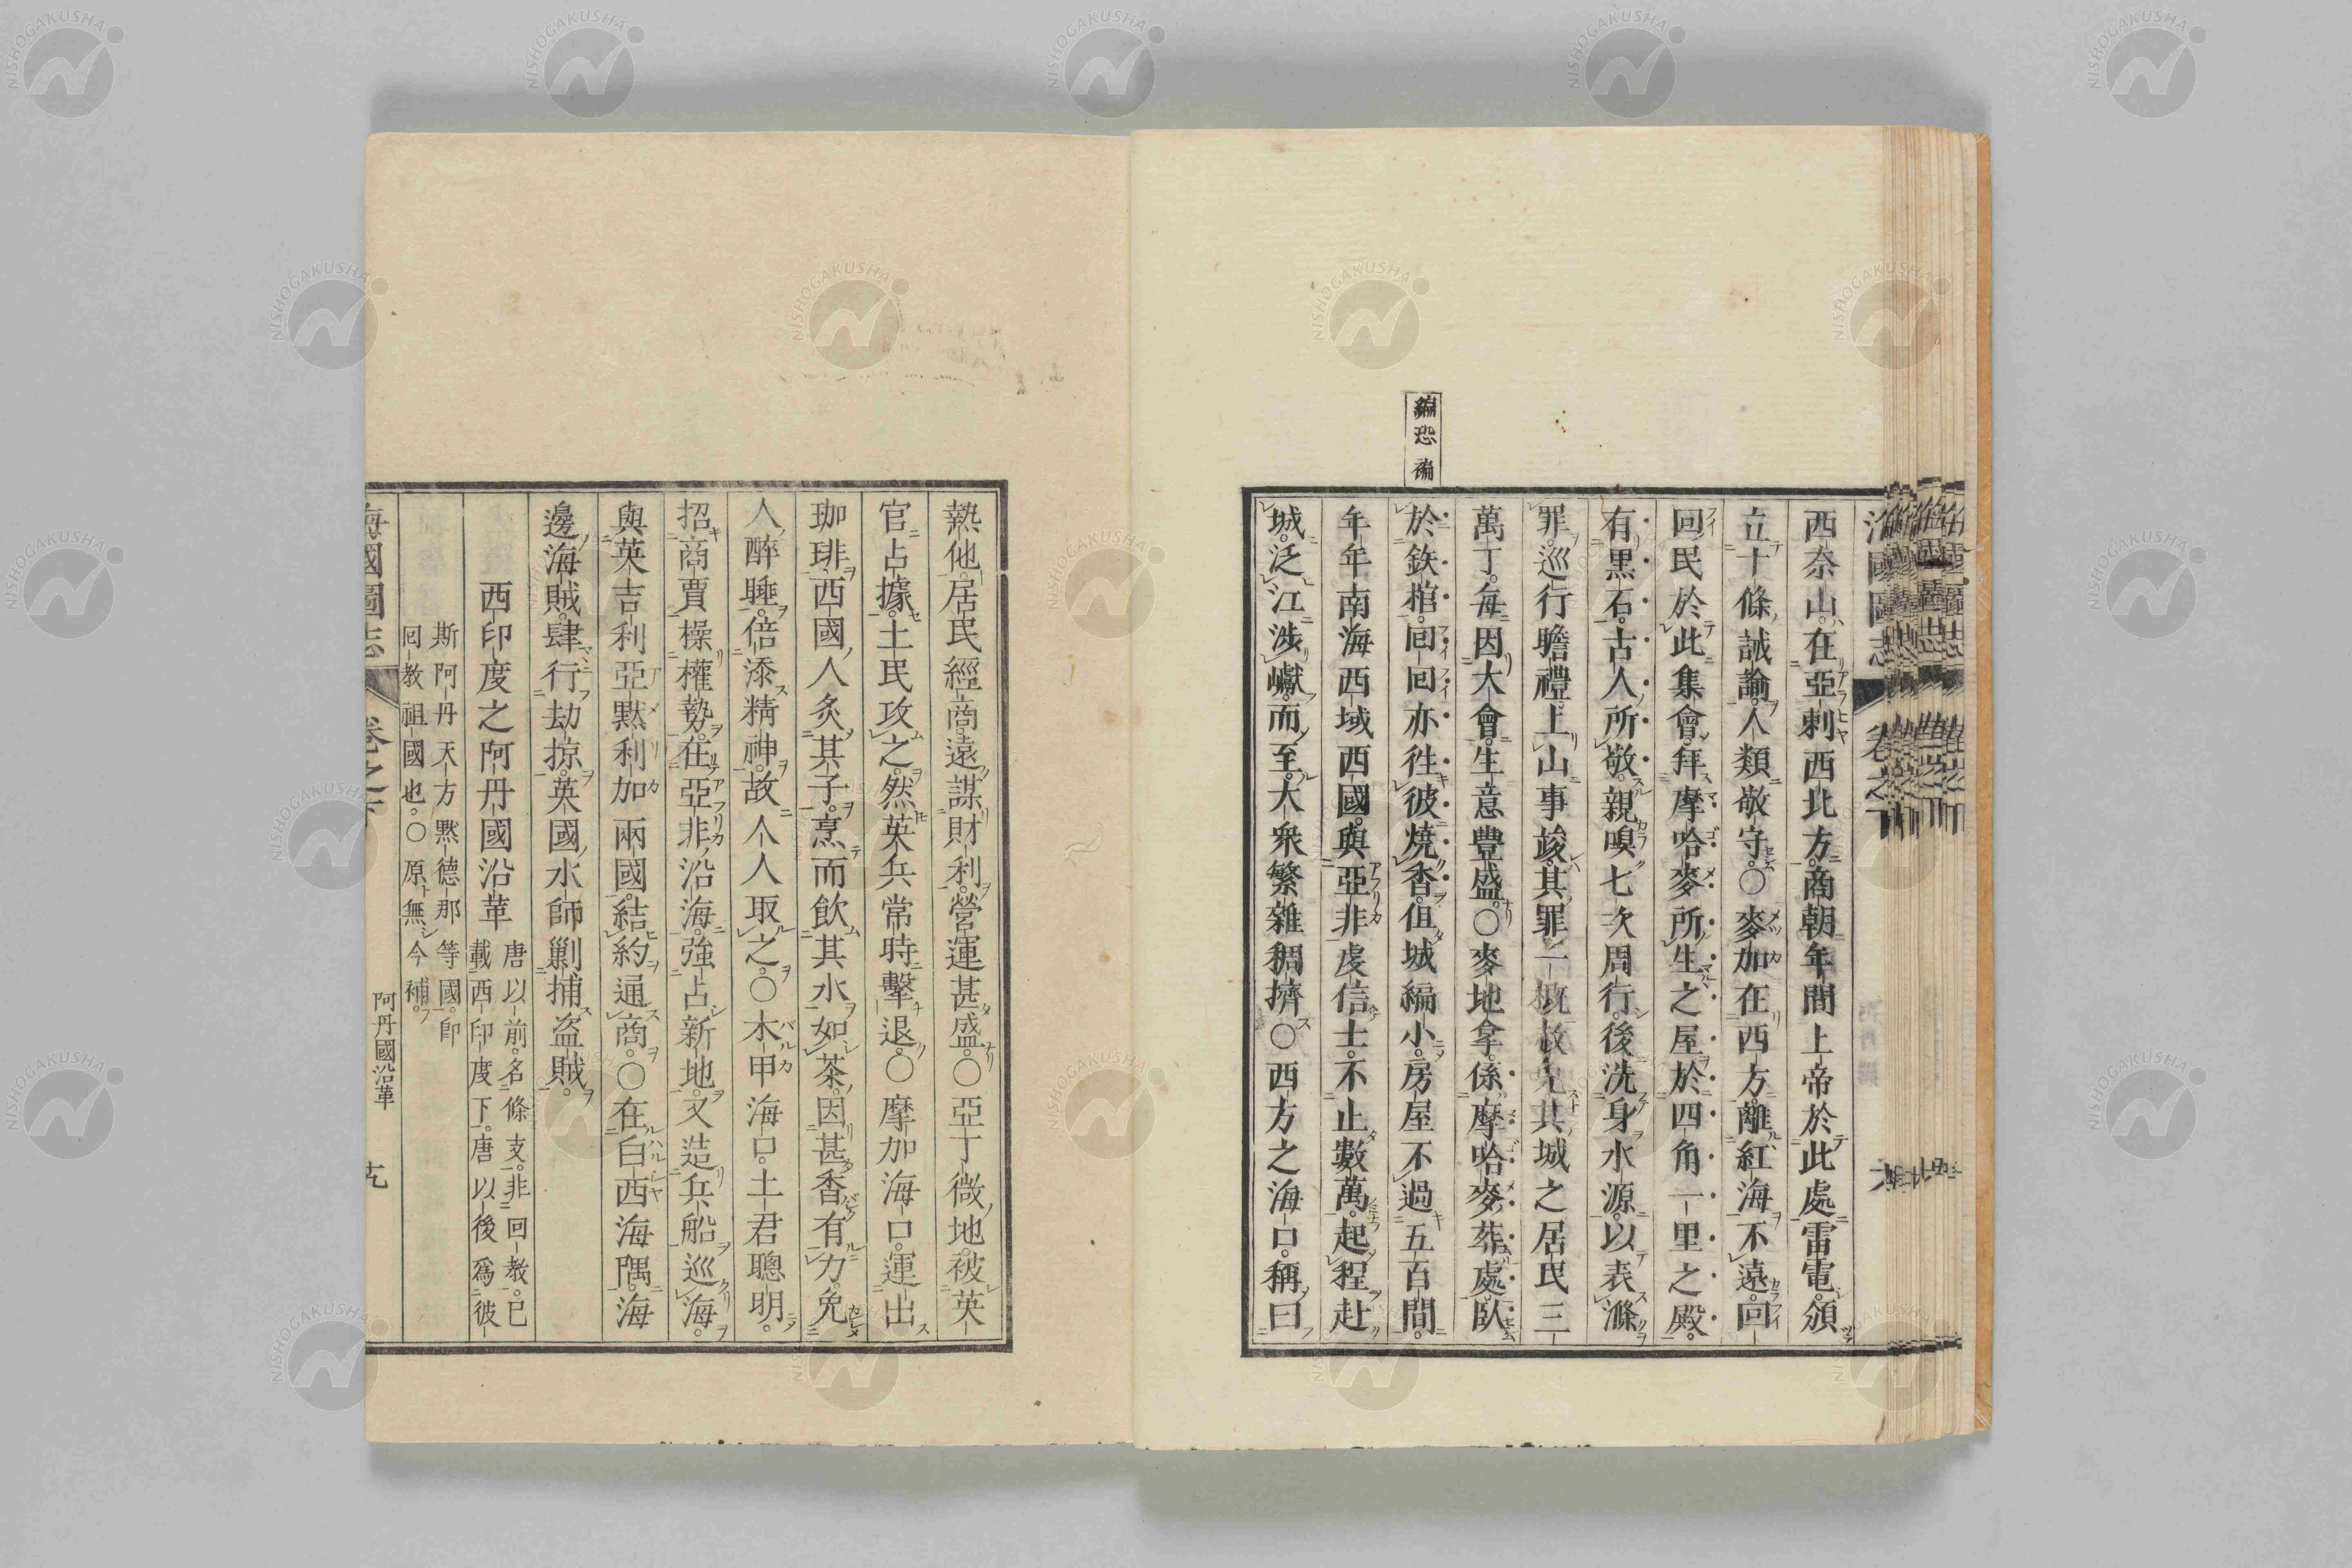 海國圖志 卷之下
西奈山在亞剌西北方。商朝年間上帝於此處雷電。頒
立十條誡諭。人類敬守。○麥加在西方。離紅海不遠。回
回民於此集會。拜摩哈麥所生之屋於四角一里之殿。
有黑石。古人所敬。親嗅七次周行。後洗身水源。以表滌
罪。巡行瞻禮。上山事竣。其罪一概赦免。其城之居民三
萬丁。每因大會。生意豐盛。○麥地拿。係摩哈麥葬處。臥
於鉄棺。回回亦徃彼燒香。但城編小。房屋不過五百間。
年年南海西域西國。與亞非虔信士。不止數萬。起程赴
城。泛江涉巘。而至。大衆繁雜稠擠。○西方之海口。稱曰
編恐褊
熱他。居民經商。遠謀財利。營運甚盛。○亞丁微地。被英
官占據。土民攻之。然英兵常時擊退。○摩加海口。運出
珈琲。西國人炙其子。烹而飲其水。如茶。因甚香有力。免
人醉睡。倍添精神。故人人取之。○木甲海口。土君聰明。
招商賈。操權勢。在亞非沿海。強占新地。又造兵船巡海。
與英吉利亞黙利加兩國。結約通商。○在白西海隅。海
邊海賊。肆行劫掠。英國水師剿捕盜賊。
西印度之阿丹國沿革
唐以前。名條支。非回教。已
載西印度下。唐以後爲彼
斯阿丹天方黙德那等國。卽
囘教祖國也。○原無今補。
海國圖志 卷之下
阿丹國沿革